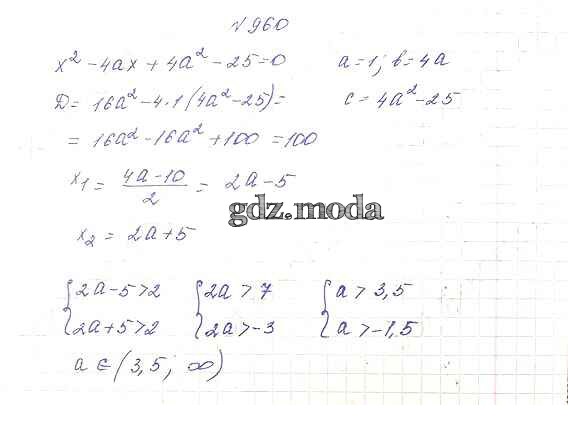 №960
x² - 4ax + 4a² - 25 = 0    a = 1; b = 4a
D = 16a² - 4·1(4a² - 25) =    c = 4a² - 25
= 16a² - 16a² + 100 = 100
x₁ = (4a - 10)/2 = 2a - 5
gdz.moda
x₂ = 2a + 5
{2a - 5 > 2    {2a > 7    {a > 3,5
{2a + 5 > 2    {2a > -3    {a > -1,5
a ∈ (3,5; ∞)